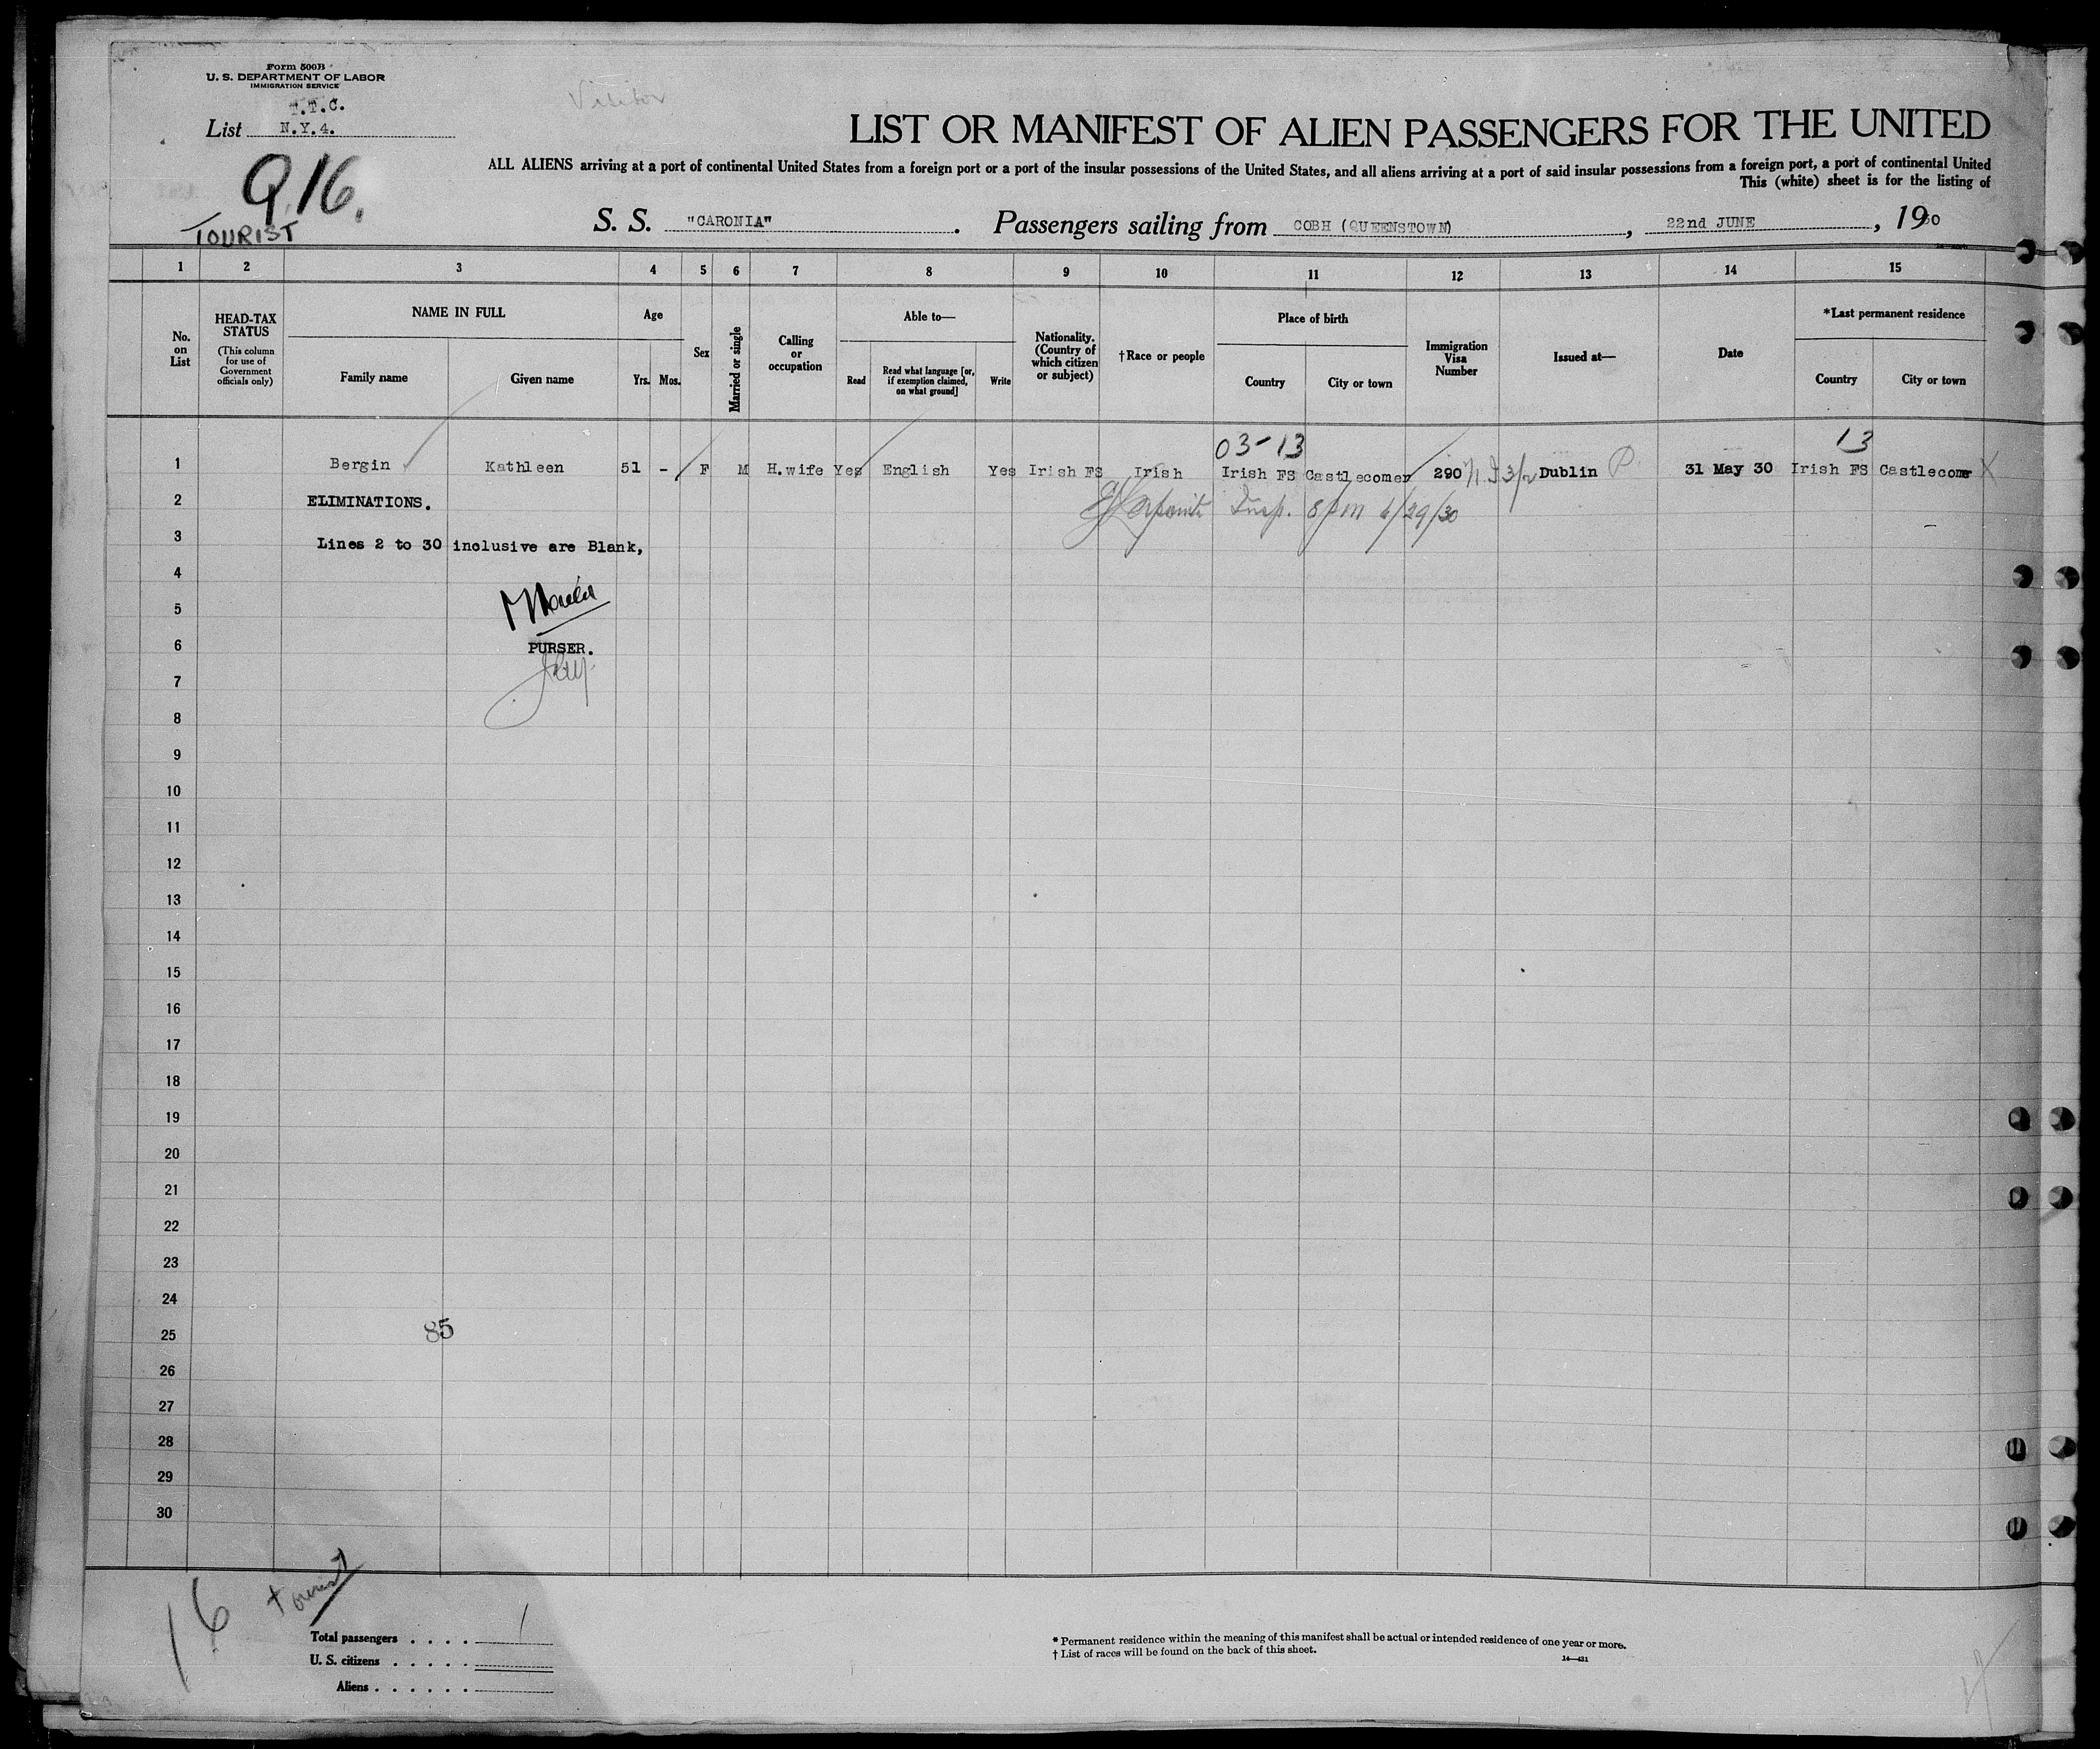 Form 500B
U. S. DEPARTMENT OF LABOR
IMMIGRATION SERVICE
T.T.C.
List N.Y.4.
Visitor
916.
TOURIST
LIST OR MANIFEST OF ALIEN PASSENGERS FOR THE UNITED
ALL ALIENS arriving at a port of continental United States from a foreign port or a port of the insular possessions of the United States, and all aliens arriving at a port of said insular possessions from a foreign port, a port of continental United
This (white) sheet is for the listing of
S. S. "CARONIA". Passengers sailing from COBH (QUEENSTOWN), 22nd JUNE, 1930
1 2 3 4 5 6 7 8 9 10 11 12 13 14 15
No. on List
HEAD-TAX STATUS (This column for use of Government officials only)
NAME IN FULL
Family name
Given name
Age
Yrs. Mos.
Sex
Married or single
Calling or occupation
Able to—
Read
Read what language [or, if exemption claimed, on what ground]
Write
Nationality. (Country of which citizen or subject)
†Race or people
Place of birth
Country
City or town
Immigration Visa Number
Issued at—
Date
*Last permanent residence
Country
City or town
03-13 13
1 Bergin Kathleen 51 - F M H.wife Yes English Yes Irish FS Irish Irish FS Castlecomer 290 Dublin P 31 May 30 Irish FS Castlecomer X
2 ELIMINATIONS. Insp. 8pm 6/29/30
3 Lines 2 to 30 inclusive are Blank,
4
5
6 PURSER.
7
8
9
10
11
12
13
14
15
16
17
18
19
20
21
22
23
24
25 85
26
27
28
29
30
16 tourist
Total passengers . . . . 1
U. S. citizens . . . . .
Aliens . . . . . .
* Permanent residence within the meaning of this manifest shall be actual or intended residence of one year or more.
† List of races will be found on the back of this sheet.
14—431